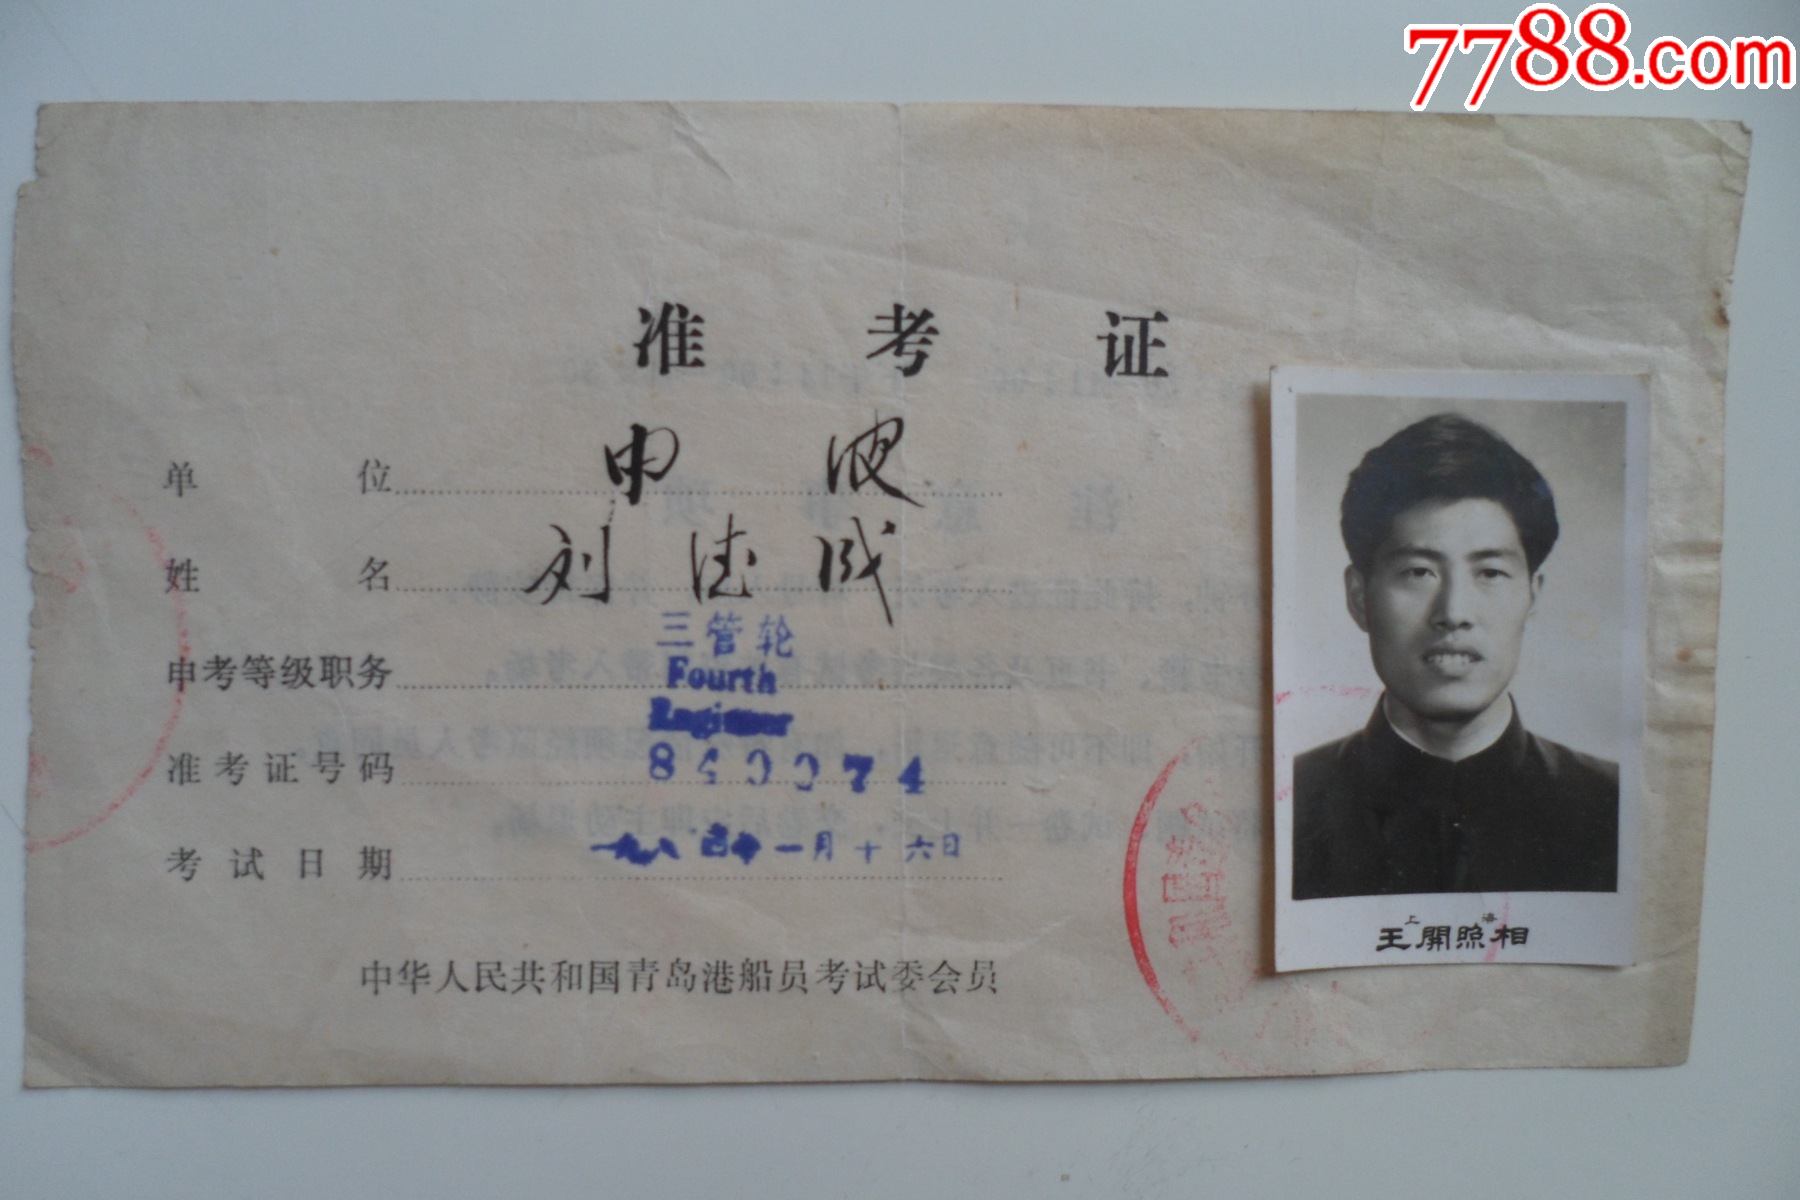 7788.com
准考证
单位 中波
姓名 刘德成
申考等级职务 三管轮
Fourth
Engineer
准考证号码 850074
考试日期 一九八四年一月十六日
中华人民共和国青岛港船员考试委会员
上海
王開照相